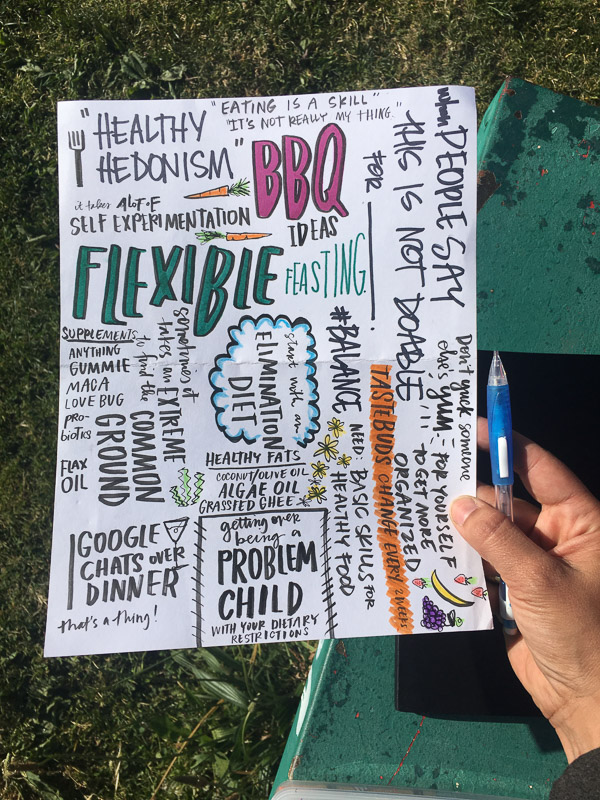 "EATING IS A SKILL"
"IT'S NOT REALLY MY THING."
"HEALTHY
HEDONISM"
BBQ
IDEAS
it takes A LOT OF
SELF EXPERIMENTATION
FLEXIBLE
FEASTING.
when PEOPLE SAY
THIS IS NOT DOABLE
FOR
SUPPLEMENTS
ANYTHING
GUMMIE
MACA
LOVE BUG
PRO-
biotics
FLAX
OIL
sometimes it
takes an EXTREME
to find the
COMMON
GROUND
start with an
ELIMINATION
DIET
#BALANCE
HEALTHY FATS
COCONUT/OLIVE OIL
ALGAE OIL
GRASSFED GHEE
NEED: BASIC SKILLS FOR
HEALTHY FOOD
TASTEBUDS CHANGE EVERY 2 WEEKS
Don't yuck someone
else's yum
FOR YOURSELF
TO GET MORE
ORGANIZED
GOOGLE
CHATS OVER
DINNER
that's a thing!
getting over
being a
PROBLEM
CHILD
WITH YOUR DIETARY
RESTRICTIONS